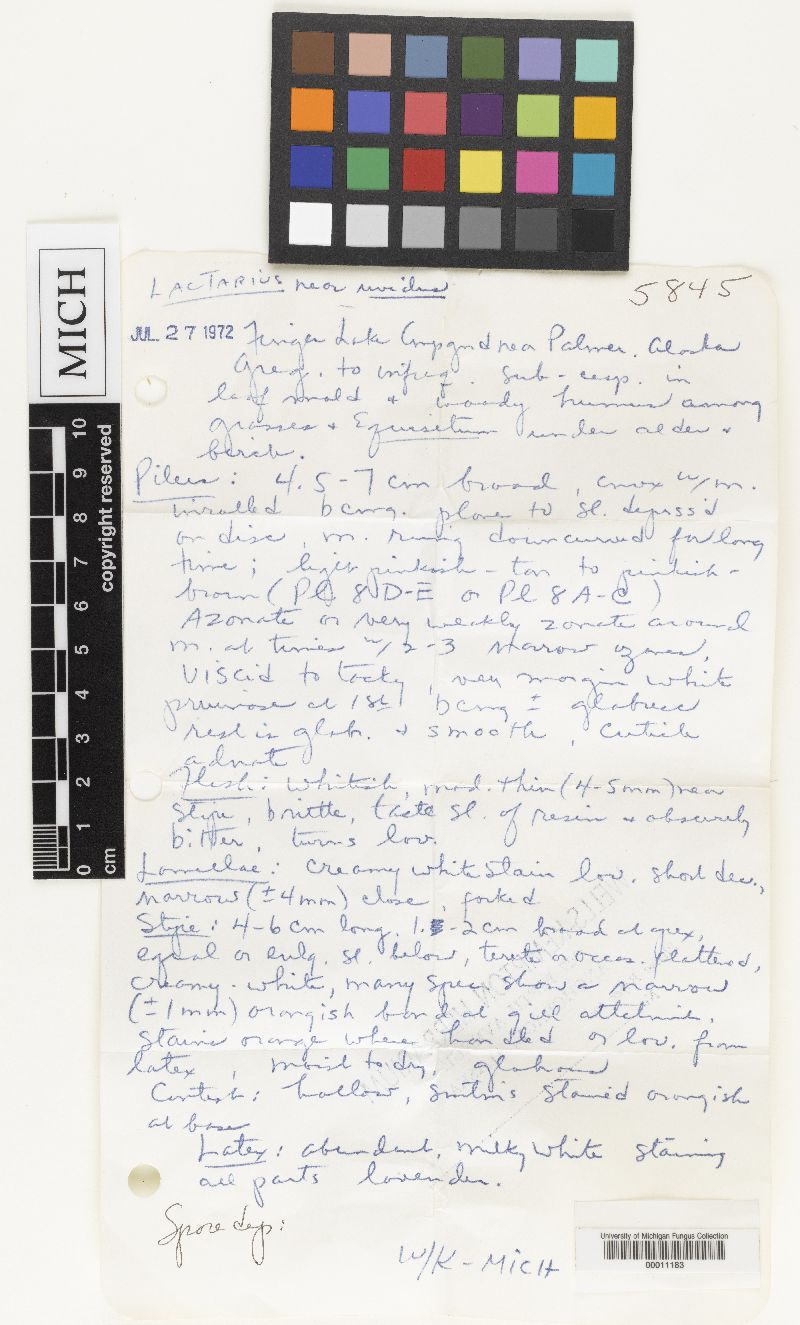 LACTARIUS near uvidus
5845
JUL 27 1972 Finger Lake Cmpgrnd near Palmer. Alaska
Greg. to infreq. sub-cesp. in
leaf mold + woody humus among
grasses + Equisetum under alder +
birch.
Pileus: 4.5-7 cm broad, cnvx w/m.
inrolled bcmg. plane to sl. depress'd
on disc, m. rmng downcurved for long
time; light pinkish-tan to pinkish-
brown (Pl 8 D-E or Pl 8 A-C)
Azonate or very weakly zonate around
m. at times w/2-3 narrow zones,
viscid to tacky, very margin white
pruinose at 1st bcmg ± glabresc
rest is glab. + smooth, cuticle
adnate
Flesh: whitish, mod. thin (4-5mm) near
stipe, brittle, taste sl. of resin + obscurely
bitter, turns lav.
Lamellae: creamy white stain lav. short dec.,
narrow (±4mm) close, forked
Stipe: 4-6 cm long, 1.5-2 cm broad at apex,
equal or enlg. sl. below, terete or occas. flattened,
creamy-white, many spec show a narrow
(±1mm) orangish band at gill attchmnt.
stains orange where handled or lav. from
latex, moist to dry, glabrous
Context: hollow, smtms stained orangish
at base
Latex: abundant, milky white staining
all parts lavender.
Spore dep:
W/K-MICH
MICH
copyright reserved
0 1 2 3 4 5 6 7 8 9 10
cm
University of Michigan Fungus Collection
00011183